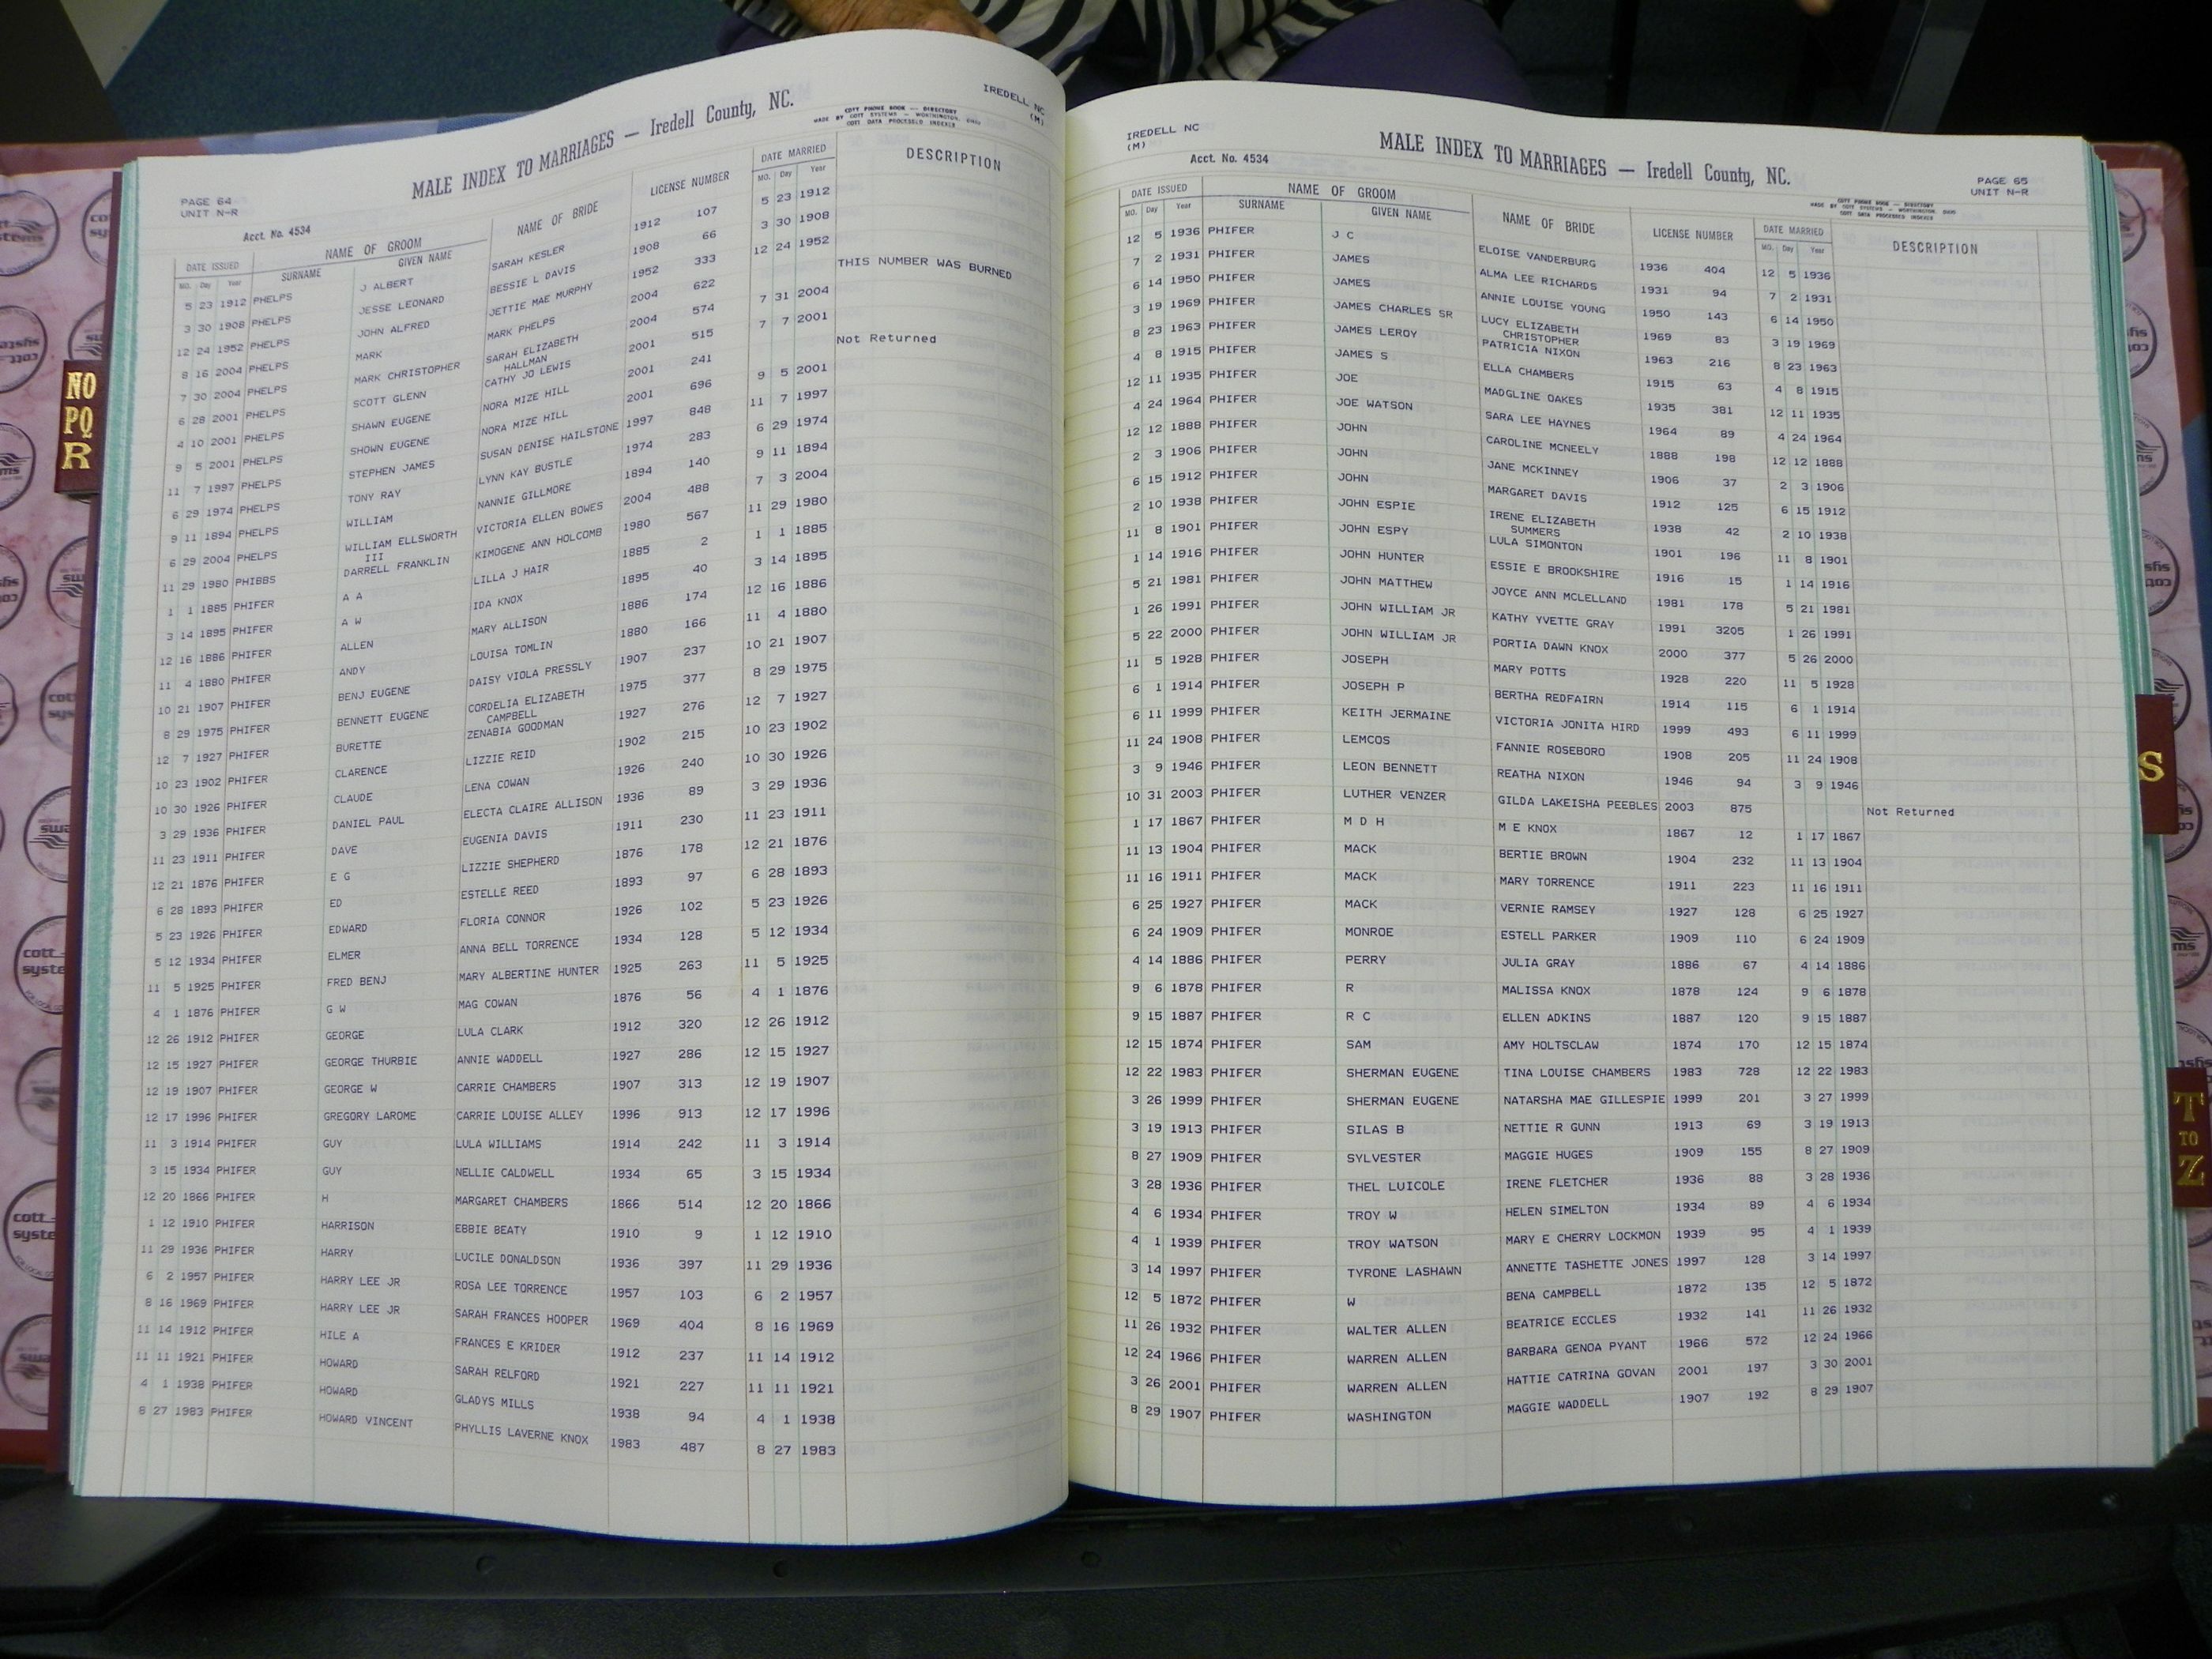 IREDELL NC
(M)
MALE INDEX TO MARRIAGES — Iredell County, NC.
COTT PHONE BOOK — DIRECTORY
MADE BY COTT SYSTEMS — WORTHINGTON, OHIO
COTT DATA PROCESSED INDEXES
PAGE 64
UNIT N-R
Acct. No. 4534
DATE ISSUED NAME OF GROOM NAME OF BRIDE LICENSE NUMBER DATE MARRIED DESCRIPTION
MO. Day Year SURNAME GIVEN NAME MO. Day Year
5 23 1912 PHELPS J ALBERT SARAH KESLER 1912 107 5 23 1912
3 30 1908 PHELPS JESSE LEONARD BESSIE L DAVIS 1908 66 3 30 1908
12 24 1952 PHELPS JOHN ALFRED JETTIE MAE MURPHY 1952 333 12 24 1952
8 16 2004 PHELPS MARK MARK PHELPS 2004 622 THIS NUMBER WAS BURNED
7 30 2004 PHELPS MARK CHRISTOPHER SARAH ELIZABETH 2004 574 7 31 2004
HALLMAN
6 28 2001 PHELPS SCOTT GLENN CATHY JO LEWIS 2001 515 7 7 2001
4 10 2001 PHELPS SHAWN EUGENE NORA MIZE HILL 2001 241 Not Returned
9 5 2001 PHELPS SHOWN EUGENE NORA MIZE HILL 2001 696 9 5 2001
11 7 1997 PHELPS STEPHEN JAMES SUSAN DENISE HAILSTONE 1997 848 11 7 1997
6 29 1974 PHELPS TONY RAY LYNN KAY BUSTLE 1974 283 6 29 1974
9 11 1894 PHELPS WILLIAM NANNIE GILLMORE 1894 140 9 11 1894
6 29 2004 PHELPS WILLIAM ELLSWORTH VICTORIA ELLEN BOWES 2004 488 7 3 2004
III
11 29 1980 PHIBBS DARRELL FRANKLIN KIMOGENE ANN HOLCOMB 1980 567 11 29 1980
1 1 1885 PHIFER A A LILLA J HAIR 1885 2 1 1 1885
3 14 1895 PHIFER A W IDA KNOX 1895 40 3 14 1895
12 16 1886 PHIFER ALLEN MARY ALLISON 1886 174 12 16 1886
11 4 1880 PHIFER ANDY LOUISA TOMLIN 1880 166 11 4 1880
10 21 1907 PHIFER BENJ EUGENE DAISY VIOLA PRESSLY 1907 237 10 21 1907
8 29 1975 PHIFER BENNETT EUGENE CORDELIA ELIZABETH 1975 377 8 29 1975
CAMPBELL
12 7 1927 PHIFER BURETTE ZENABIA GOODMAN 1927 276 12 7 1927
10 23 1902 PHIFER CLARENCE LIZZIE REID 1902 215 10 23 1902
10 30 1926 PHIFER CLAUDE LENA COWAN 1926 240 10 30 1926
3 29 1936 PHIFER DANIEL PAUL ELECTA CLAIRE ALLISON 1936 89 3 29 1936
11 23 1911 PHIFER DAVE EUGENIA DAVIS 1911 230 11 23 1911
12 21 1876 PHIFER E G LIZZIE SHEPHERD 1876 178 12 21 1876
6 28 1893 PHIFER ED ESTELLE REED 1893 97 6 28 1893
5 23 1926 PHIFER EDWARD FLORIA CONNOR 1926 102 5 23 1926
5 12 1934 PHIFER ELMER ANNA BELL TORRENCE 1934 128 5 12 1934
11 5 1925 PHIFER FRED BENJ MARY ALBERTINE HUNTER 1925 263 11 5 1925
4 1 1876 PHIFER G W MAG COWAN 1876 56 4 1 1876
12 26 1912 PHIFER GEORGE LULA CLARK 1912 320 12 26 1912
12 15 1927 PHIFER GEORGE THURBIE ANNIE WADDELL 1927 286 12 15 1927
12 19 1907 PHIFER GEORGE W CARRIE CHAMBERS 1907 313 12 19 1907
12 17 1996 PHIFER GREGORY LAROME CARRIE LOUISE ALLEY 1996 913 12 17 1996
11 3 1914 PHIFER GUY LULA WILLIAMS 1914 242 11 3 1914
3 15 1934 PHIFER GUY NELLIE CALDWELL 1934 65 3 15 1934
12 20 1866 PHIFER H MARGARET CHAMBERS 1866 514 12 20 1866
1 12 1910 PHIFER HARRISON EBBIE BEATY 1910 9 1 12 1910
11 29 1936 PHIFER HARRY LUCILE DONALDSON 1936 397 11 29 1936
6 2 1957 PHIFER HARRY LEE JR ROSA LEE TORRENCE 1957 103 6 2 1957
8 16 1969 PHIFER HARRY LEE JR SARAH FRANCES HOOPER 1969 404 8 16 1969
11 14 1912 PHIFER HILE A FRANCES E KRIDER 1912 237 11 14 1912
11 11 1921 PHIFER HOWARD SARAH RELFORD 1921 227 11 11 1921
4 1 1938 PHIFER HOWARD GLADYS MILLS 1938 94 4 1 1938
8 27 1983 PHIFER HOWARD VINCENT PHYLLIS LAVERNE KNOX 1983 487 8 27 1983
IREDELL NC
(M)
Acct. No. 4534
MALE INDEX TO MARRIAGES — Iredell County, NC.
PAGE 65
UNIT N-R
COTT PHONE BOOK — DIRECTORY
MADE BY COTT SYSTEMS — WORTHINGTON, OHIO
COTT DATA PROCESSED INDEXES
DATE ISSUED NAME OF GROOM NAME OF BRIDE LICENSE NUMBER DATE MARRIED DESCRIPTION
MO. Day Year SURNAME GIVEN NAME MO. Day Year
12 5 1936 PHIFER J C ELOISE VANDERBURG 1936 404 12 5 1936
7 2 1931 PHIFER JAMES ALMA LEE RICHARDS 1931 94 7 2 1931
6 14 1950 PHIFER JAMES ANNIE LOUISE YOUNG 1950 143 6 14 1950
3 19 1969 PHIFER JAMES CHARLES SR LUCY ELIZABETH 1969 83 3 19 1969
CHRISTOPHER
8 23 1963 PHIFER JAMES LEROY PATRICIA NIXON 1963 216 8 23 1963
4 8 1915 PHIFER JAMES S ELLA CHAMBERS 1915 63 4 8 1915
12 11 1935 PHIFER JOE MADGLINE OAKES 1935 381 12 11 1935
4 24 1964 PHIFER JOE WATSON SARA LEE HAYNES 1964 89 4 24 1964
12 12 1888 PHIFER JOHN CAROLINE MCNEELY 1888 198 12 12 1888
2 3 1906 PHIFER JOHN JANE MCKINNEY 1906 37 2 3 1906
6 15 1912 PHIFER JOHN MARGARET DAVIS 1912 125 6 15 1912
2 10 1938 PHIFER JOHN ESPIE IRENE ELIZABETH 1938 42 2 10 1938
SUMMERS
11 8 1901 PHIFER JOHN ESPY LULA SIMONTON 1901 196 11 8 1901
1 14 1916 PHIFER JOHN HUNTER ESSIE E BROOKSHIRE 1916 15 1 14 1916
5 21 1981 PHIFER JOHN MATTHEW JOYCE ANN MCLELLAND 1981 178 5 21 1981
1 26 1991 PHIFER JOHN WILLIAM JR KATHY YVETTE GRAY 1991 3205 1 26 1991
5 22 2000 PHIFER JOHN WILLIAM JR PORTIA DAWN KNOX 2000 377 5 26 2000
11 5 1928 PHIFER JOSEPH MARY POTTS 1928 220 11 5 1928
6 1 1914 PHIFER JOSEPH P BERTHA REDFAIRN 1914 115 6 1 1914
6 11 1999 PHIFER KEITH JERMAINE VICTORIA JONITA HIRD 1999 493 6 11 1999
11 24 1908 PHIFER LEMCOS FANNIE ROSEBORO 1908 205 11 24 1908
3 9 1946 PHIFER LEON BENNETT REATHA NIXON 1946 94 3 9 1946
10 31 2003 PHIFER LUTHER VENZER GILDA LAKEISHA PEEBLES 2003 875 Not Returned
1 17 1867 PHIFER M D H M E KNOX 1867 12 1 17 1867
11 13 1904 PHIFER MACK BERTIE BROWN 1904 232 11 13 1904
11 16 1911 PHIFER MACK MARY TORRENCE 1911 223 11 16 1911
6 25 1927 PHIFER MACK VERNIE RAMSEY 1927 128 6 25 1927
6 24 1909 PHIFER MONROE ESTELL PARKER 1909 110 6 24 1909
4 14 1886 PHIFER PERRY JULIA GRAY 1886 67 4 14 1886
9 6 1878 PHIFER R MALISSA KNOX 1878 124 9 6 1878
9 15 1887 PHIFER R C ELLEN ADKINS 1887 120 9 15 1887
12 15 1874 PHIFER SAM AMY HOLTSCLAW 1874 170 12 15 1874
12 22 1983 PHIFER SHERMAN EUGENE TINA LOUISE CHAMBERS 1983 728 12 22 1983
3 26 1999 PHIFER SHERMAN EUGENE NATARSHA MAE GILLESPIE 1999 201 3 27 1999
3 19 1913 PHIFER SILAS B NETTIE R GUNN 1913 69 3 19 1913
8 27 1909 PHIFER SYLVESTER MAGGIE HUGES 1909 155 8 27 1909
3 28 1936 PHIFER THEL LUICOLE IRENE FLETCHER 1936 88 3 28 1936
4 6 1934 PHIFER TROY W HELEN SIMELTON 1934 89 4 6 1934
4 1 1939 PHIFER TROY WATSON MARY E CHERRY LOCKMON 1939 95 4 1 1939
3 14 1997 PHIFER TYRONE LASHAWN ANNETTE TASHETTE JONES 1997 128 3 14 1997
12 5 1872 PHIFER W BENA CAMPBELL 1872 135 12 5 1872
11 26 1932 PHIFER WALTER ALLEN BEATRICE ECCLES 1932 141 11 26 1932
12 24 1966 PHIFER WARREN ALLEN BARBARA GENOA PYANT 1966 572 12 24 1966
3 26 2001 PHIFER WARREN ALLEN HATTIE CATRINA GOVAN 2001 197 3 30 2001
8 29 1907 PHIFER WASHINGTON MAGGIE WADDELL 1907 192 8 29 1907
NO
PQ
R
S
T
TO
Z
cott
systems